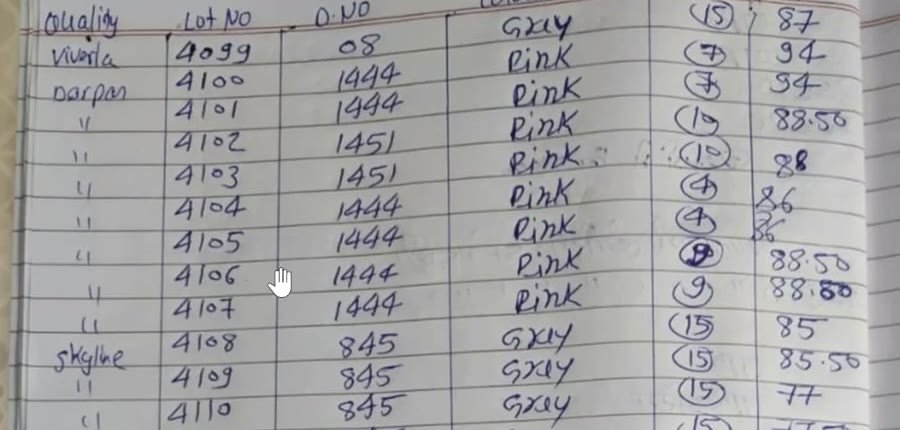 Quality Lot No D.NO
Viverla 4099 08 Grey 15 87
Darpan 4100 1444 Pink 7 94
" 4101 1444 Pink 7 94
" 4102 1451 Pink 10 88.50
" 4103 1451 Pink 10 88
" 4104 1444 Pink 4 86
" 4105 1444 Pink 4 86
" 4106 1444 Pink 9 88.50
" 4107 1444 Pink 9 88.50
Skyline 4108 845 Grey 15 85
" 4109 845 Grey 15 85.50
" 4110 845 Grey 15 77